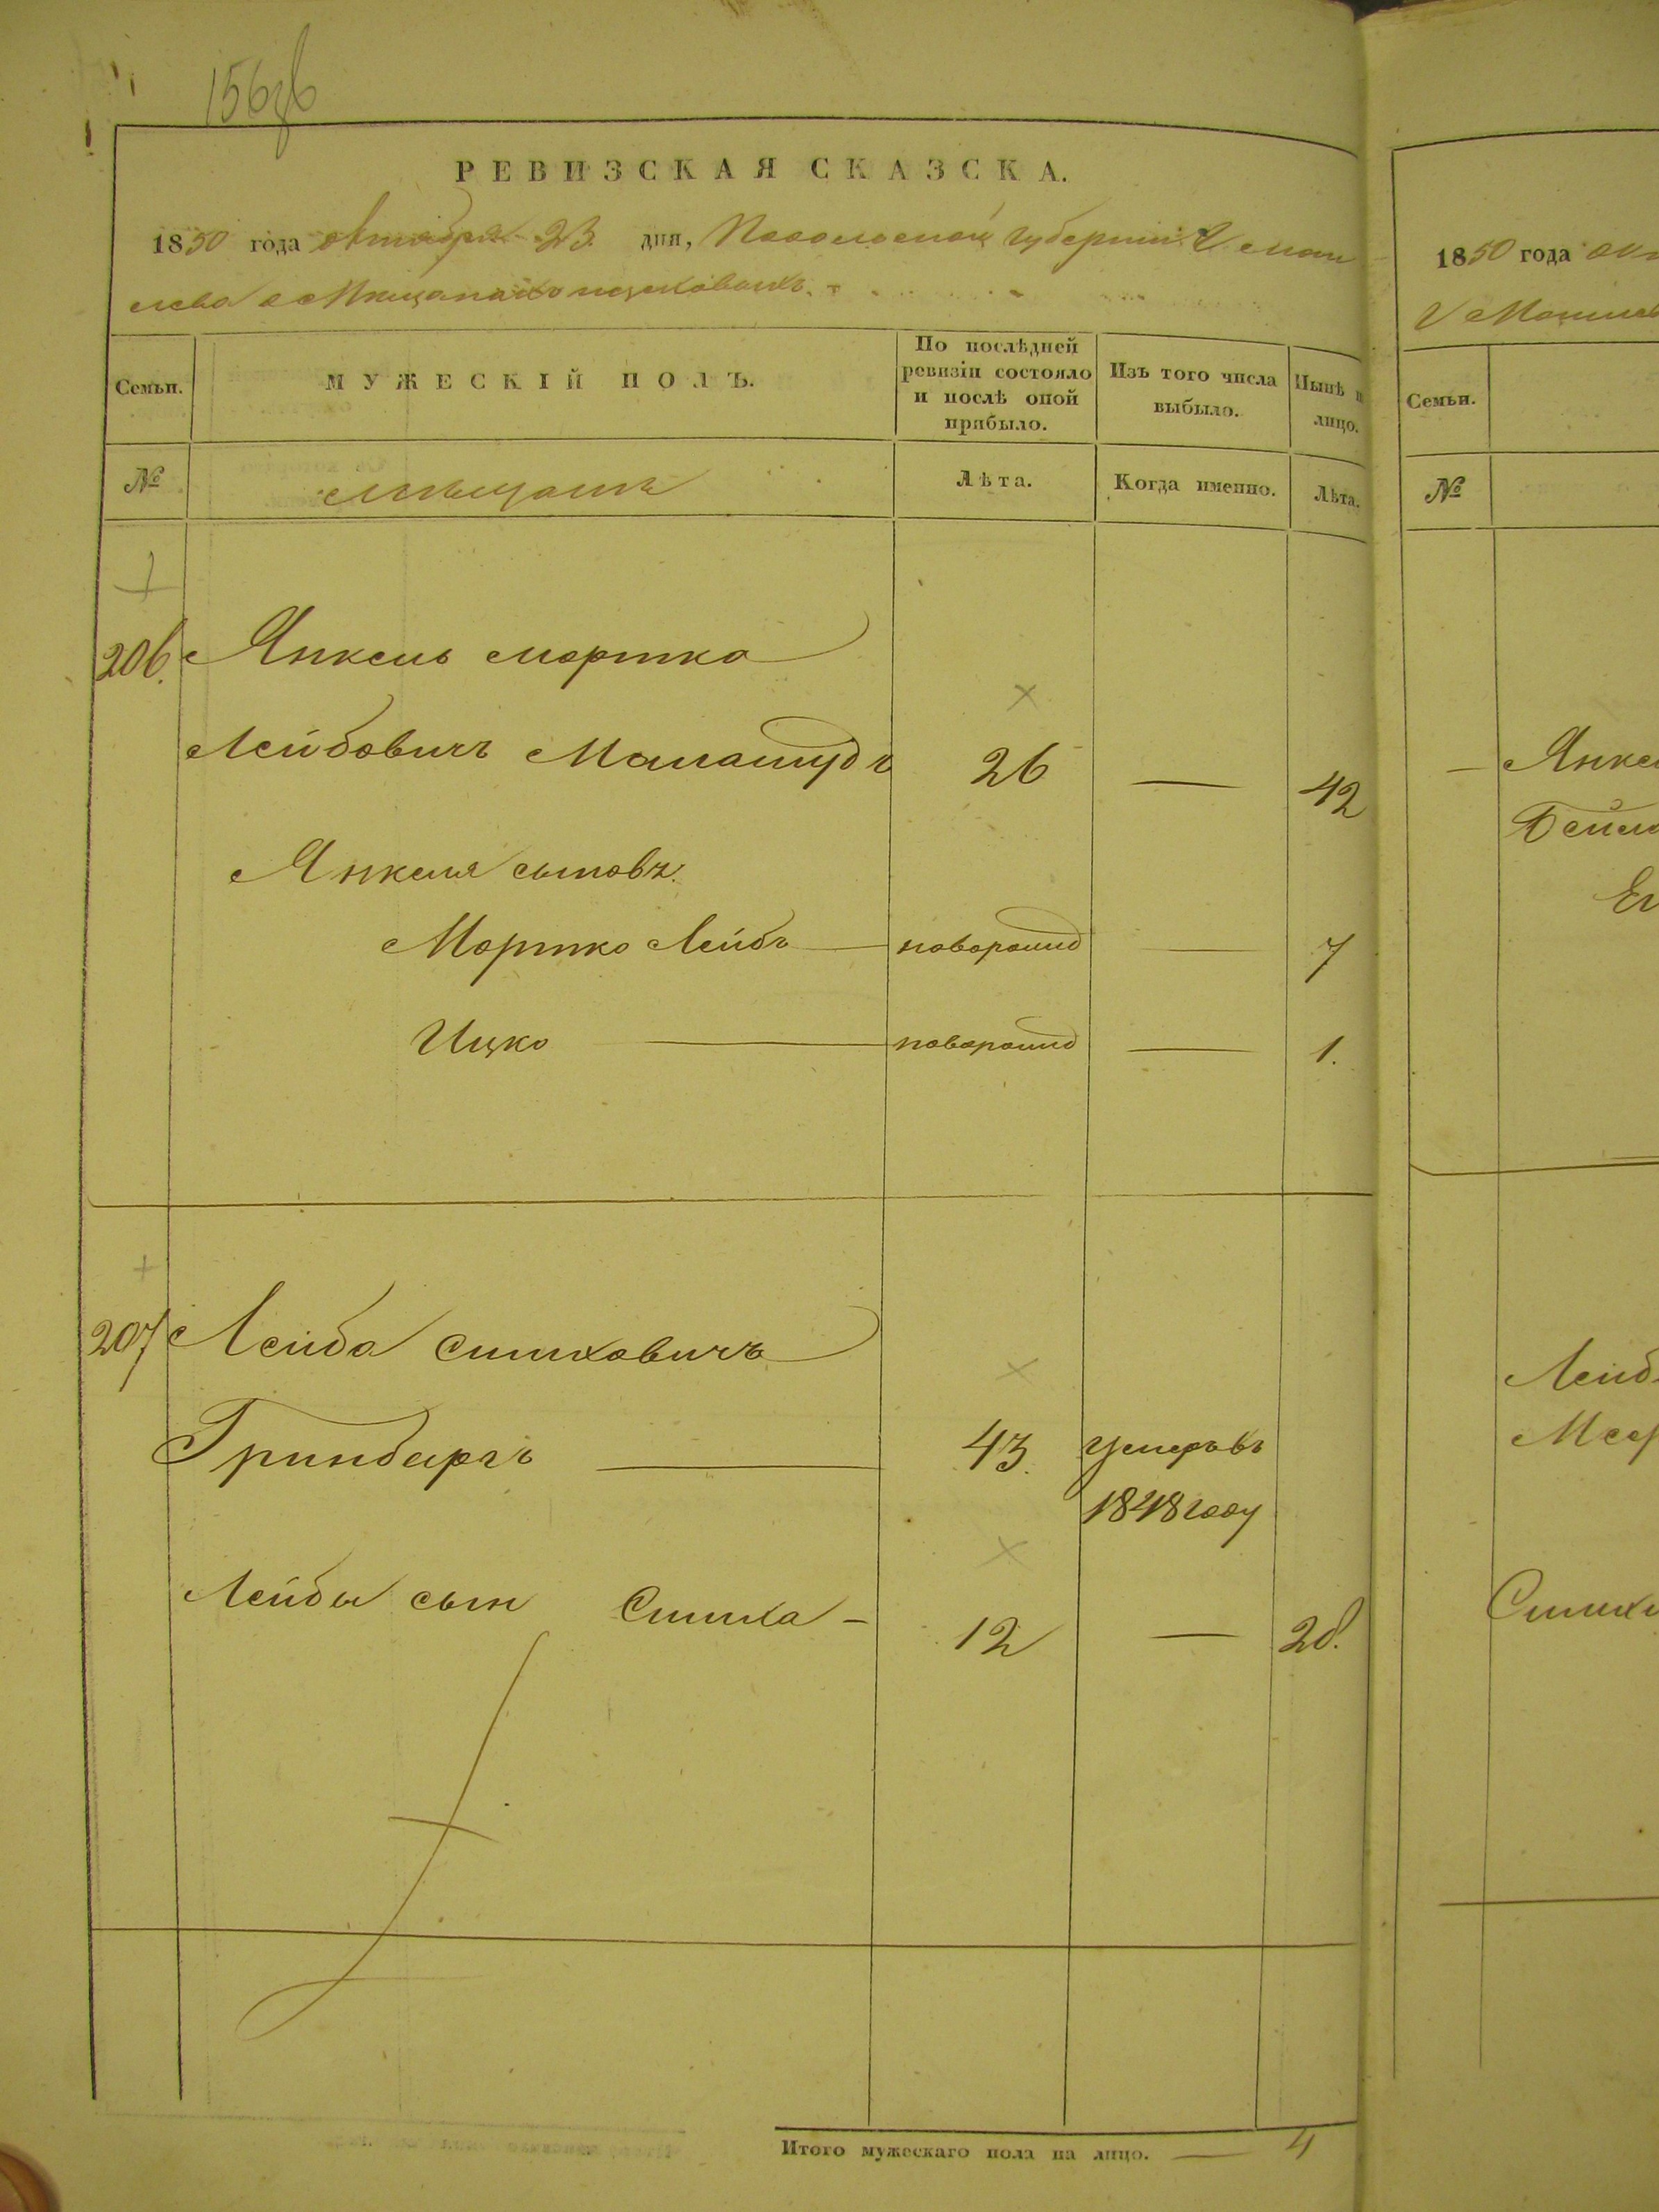 РЕВИЗСКАЯ СКАЗСКА.
1850 года октября 23 дня, Подольской губернiи г моги
лева о Мещанахъ
Семьи.
МУЖЕСКІЙ ПОЛЪ.
По послѣдней ревизіи состояло и послѣ оной прибыло.
Изъ того числа выбыло.
Нынѣ н лицо.
№
мещане
Лѣта.
Когда именно.
Лѣта.
206. Янкель мортко
Лейбовичъ 26 — 42
Янкеля сыновъ.
Мортко Лейбъ — новорожд — 7
Ицко — новорожд — 1.
207 Лейба симховичъ
Гринбергъ — 43. умеръ въ
1848 году
Лейбы сын Симха — 12 — 28.
Итого мужескаго пола на лицо. — 4
1850 года ок
г Могилев
Семьи.
№
— Янкел
Бейл
Ег
Лейб
Симхи